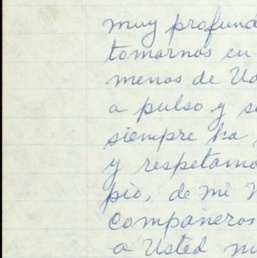 muy profund
tomarnos en
menos de Ud
a pulso y s
siempre ha
y respetamo
pio, de mi
companeros
a Usted mu